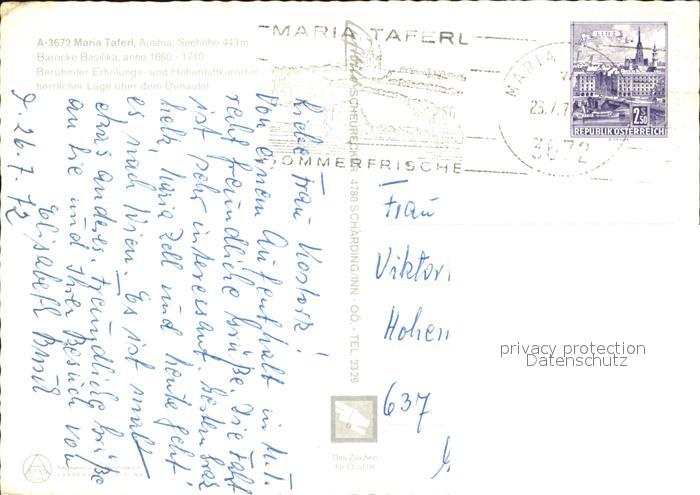 A-3672 Maria Taferl, Austria, Seehöhe 443m
Barocke Basilika, anno 1660 - 1710
Berühmter Erholungs- und
herrlicher Lage über dem Donautal
MARIA TAFERL
SOMMERFRISCHE
MARIA
26.7.7
3672
LINZ
2.50
REPUBLIK ÖSTERREICH
4780 SCHÄRDING/INN - OÖ. - TEL 2329
Liebe Frau
Von einem Aufenthalt in
recht freundliche Grüße. Die Fahrt
ist sehr interessant. Gestern
Maria Zell und heute geht
es nach Wien. Es ist
etwas anderes. Freundliche Grüße
an Sie und Ihren Besuch von
Elisabeth
D. 26.7.72
Frau
Viktor
Hohen
637
Das Zeichen
für Qualität
privacy protection
Datenschutz